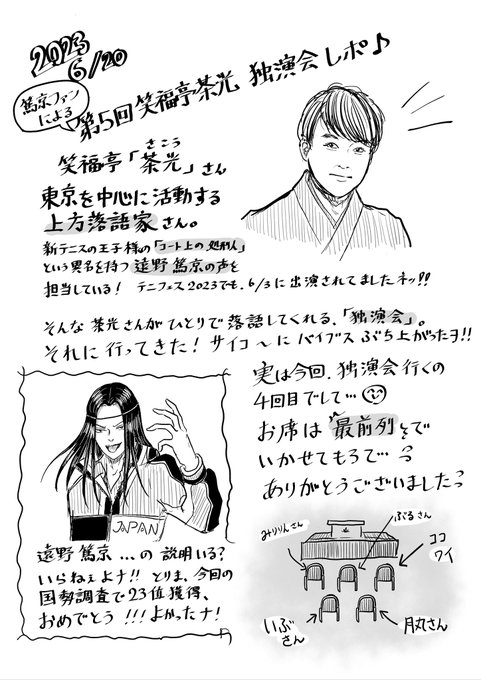 2023
6/20
篤京ファン
による
第5回 笑福亭茶光 独演会 レポ♪
さこう
笑福亭「茶光」さん
東京を中心に活動する
上方落語家さん。
新テニスの王子様の「コート上の処刑人」
という異名を持つ 遠野篤京の声を
担当している! テニフェス2023でも、6/3に出演されてましたネッ!!
そんな茶光さんがひとりで落語してくれる、「独演会」。
それに行ってきた! サイコ〜にバイブスぶち上がったヨ!!
実は今回、独演会行くの
4回目でして…
お席は 最前列とで
いかせてもろて…
ありがとうございましたっ
JAPAN
遠野篤京 …の 説明いる?
いらねぇよナ!! とりま、今回の
国勢調査で23位獲得、
おめでとう!!! よかったナ!
みりりんさん
ぶるさん
ココ
ワイ
いぶ
さん
月丸さん